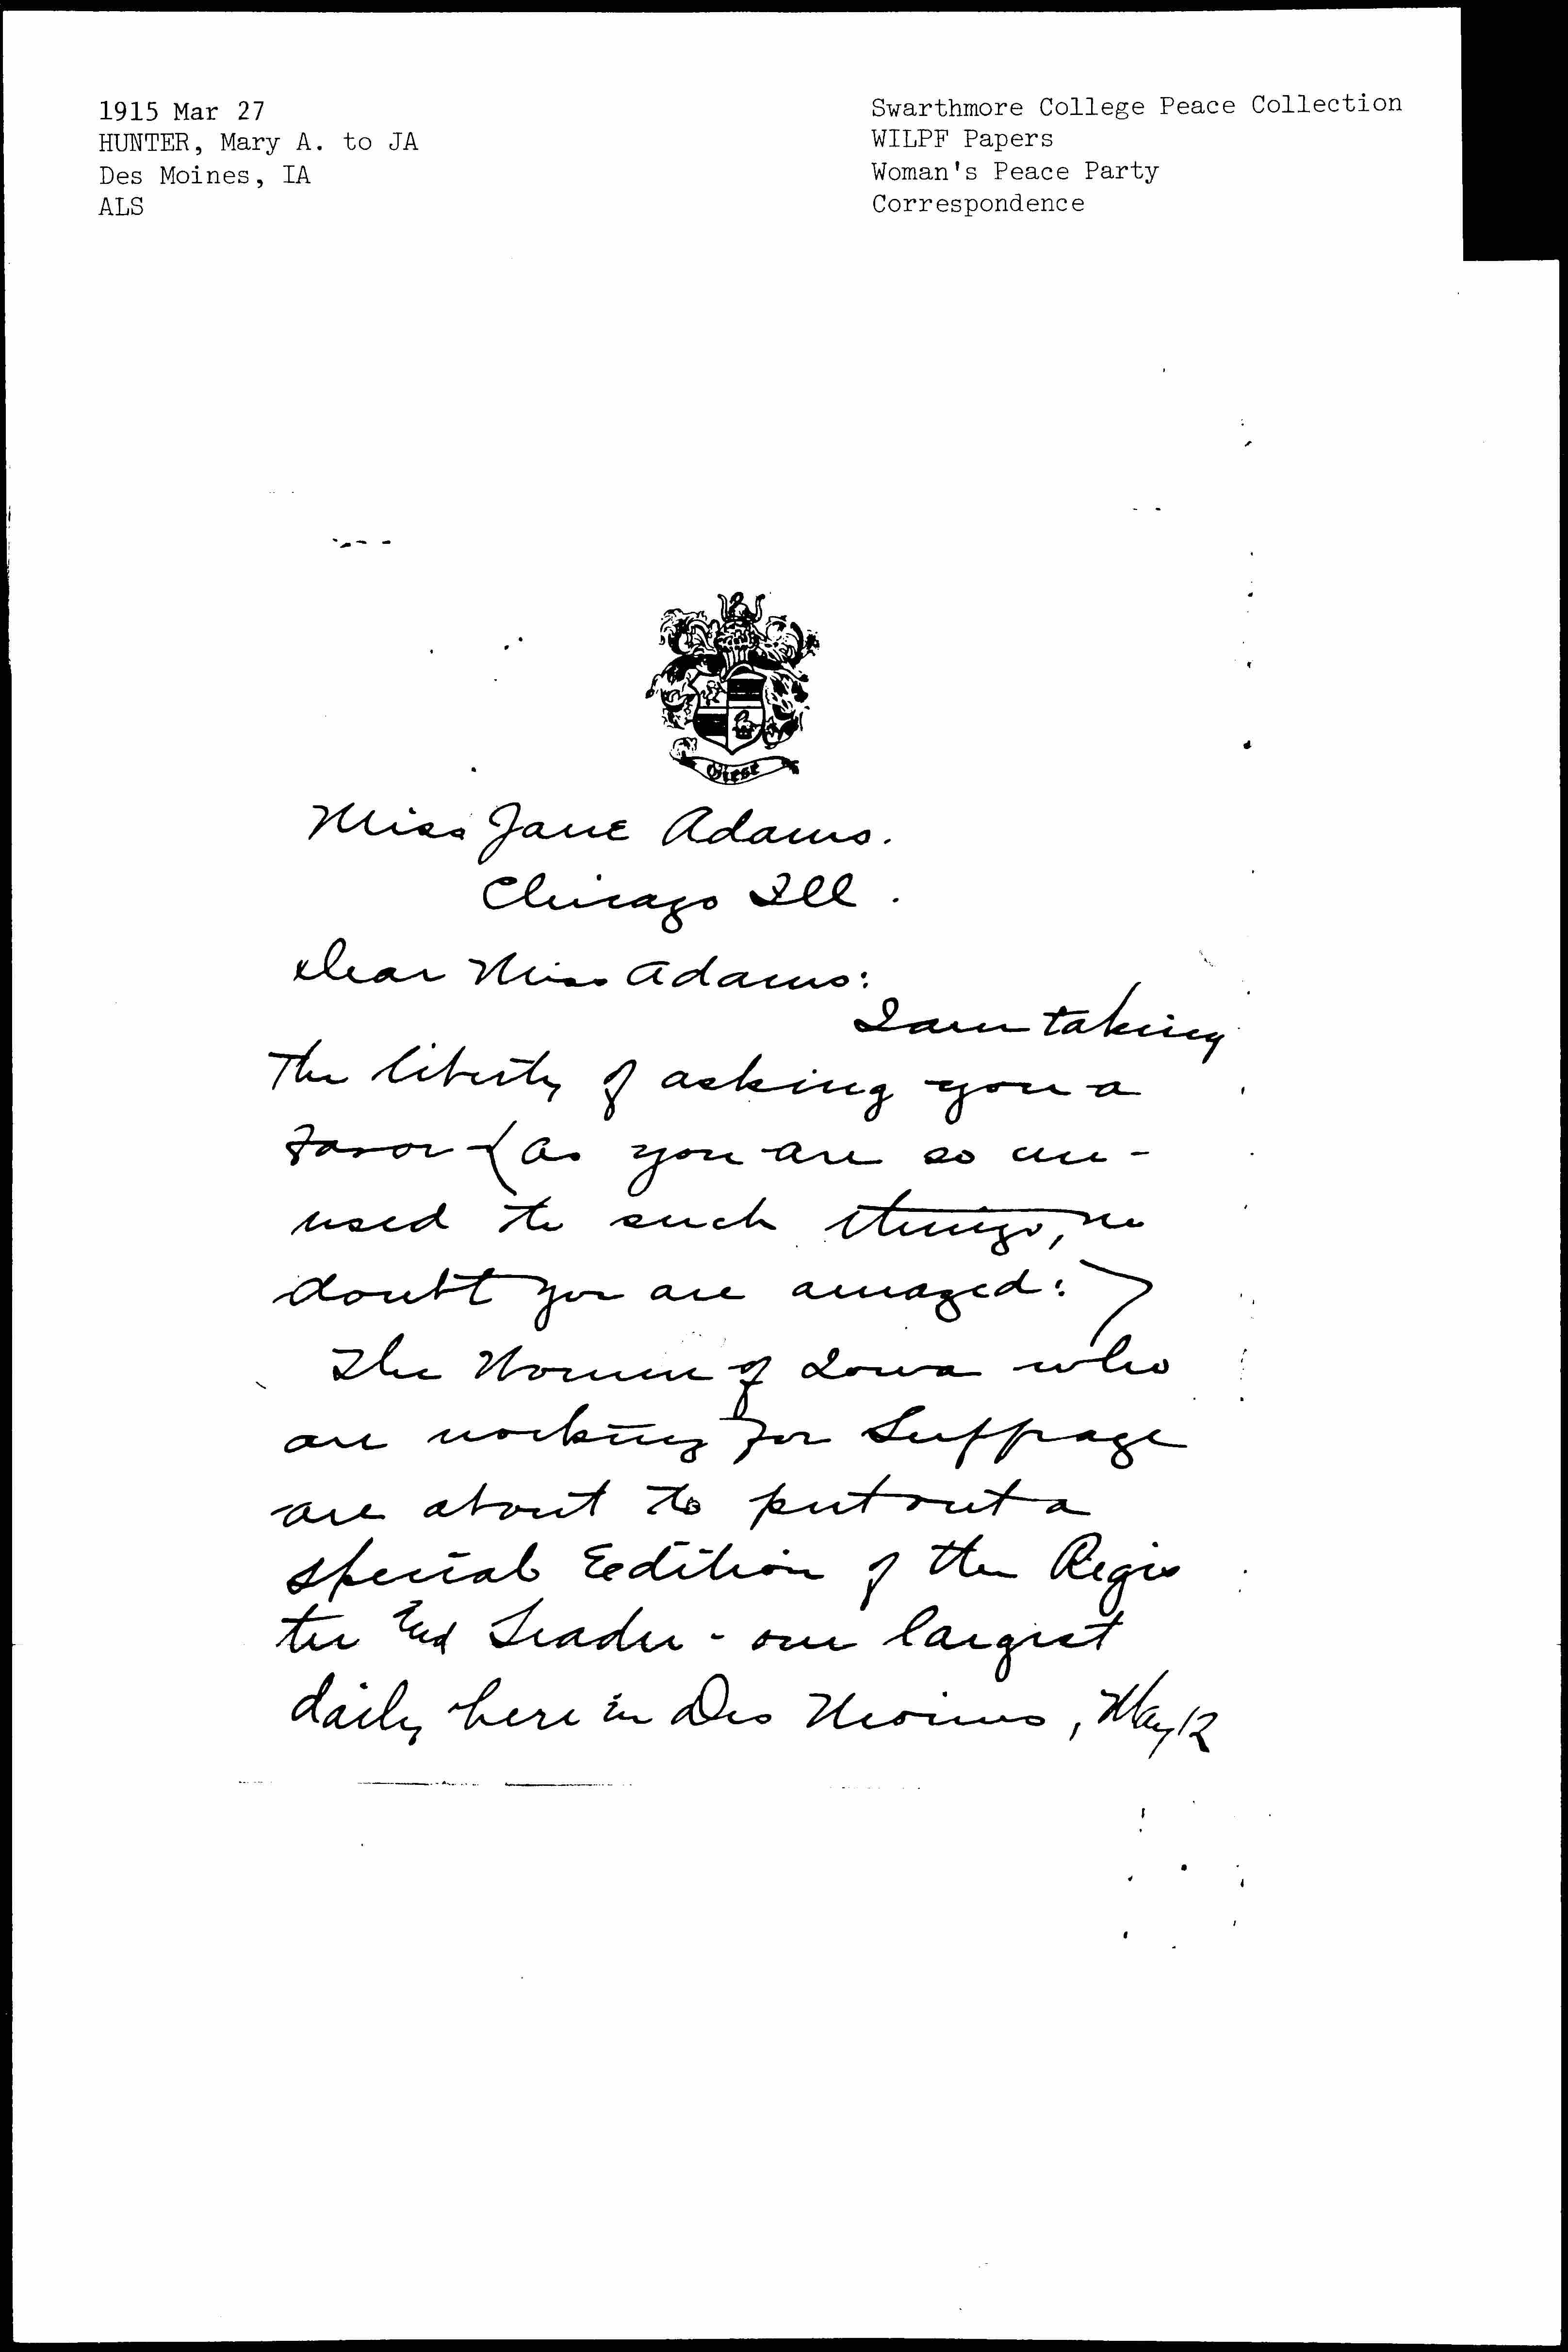 1915 Mar 27
HUNTER, Mary A. to JA
Des Moines, IA
ALS
Swarthmore College Peace Collection
WILPF Papers
Woman's Peace Party
Correspondence
Giese
Miss Jane Adams.
Chicago Ill.
Dear Miss Adams:
I am taking
The liberty of asking you a
favor - (as you are so un-
used to such things, no
doubt you are amazed:)
The Women of Iowa who
are working for Suffrage
are about to put out a
special Eedition of the Regis
ter and Leader - our largest
daily here in Des Moines, May 12